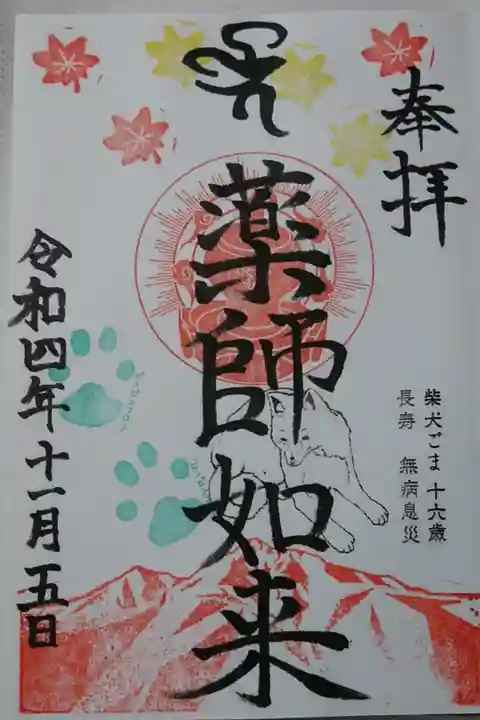 奉拝
薬師如来
柴犬ごま 十六歳
長寿 無病息災
令和四年十一月五日